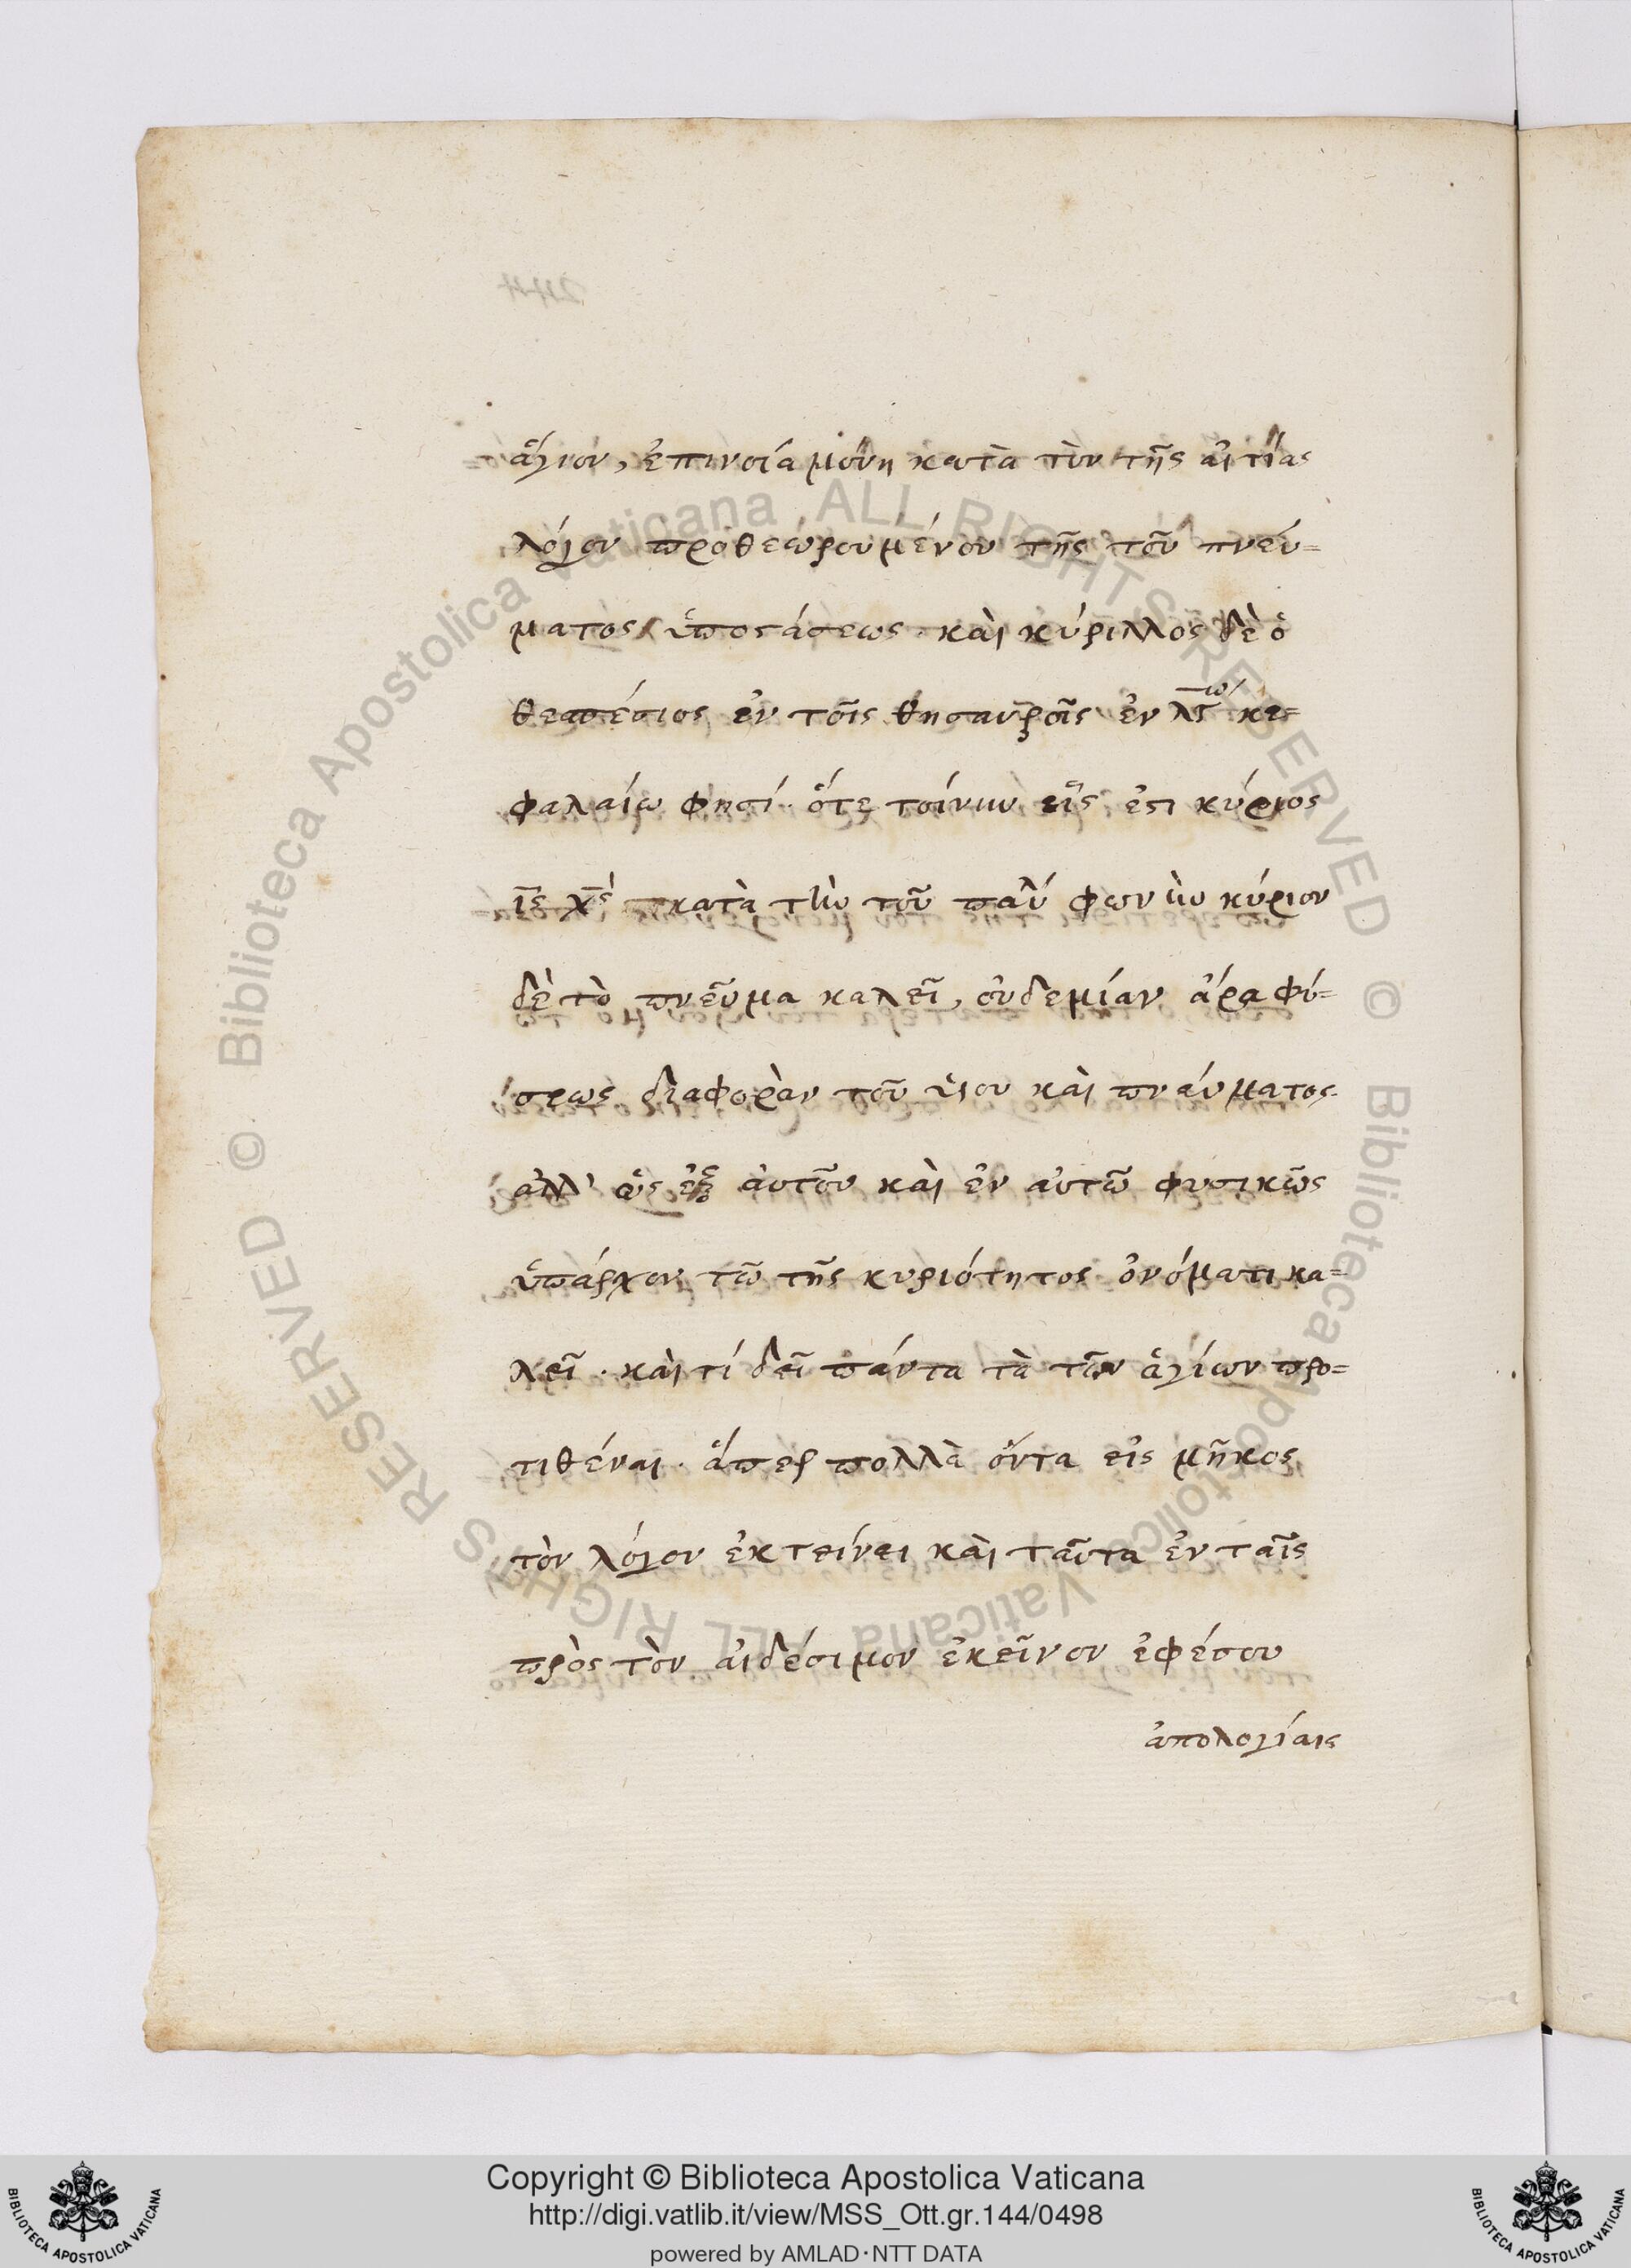 ἅγιον, ἐπινοία μόνη κατὰ τὸν τῆς αἰτίας
λόγον προθεωρουμένου τῆς τοῦ πνεύ=
ματος ὑποστάσεως. καὶ κύριλλος δὲ ὁ
θεσπέσιος ἐν τοῖς θησαυροῖς ἐν λγ^ω κε=
φαλαίω φησί. ὅτε τοίνυν εἷς ἐστι κύριος
ι̅ς̅ χ̅ς̅ κατὰ τὴν τοῦ παύλου φωνὴν κύριον
δὲ τὸ πνεῦμα καλεῖ, οὐδεμίαν ἄρα φύ=
σεως διαφορὰν τοῦ υἱου καὶ πνεύματος.
ἀλλ' ὡς ἐξ ἀυτοῦ καὶ ἐν αὐτῶ φυσικῶς
ὑπάρχον τῶ τῆς κυριότητος ὀνόματι κα=
λεῖ. καὶ τί δεῖ πάντα τὰ τῶν ἁγίων προ=
τιθέναι. ἅπερ πολλὰ ὄντα εἰς μῆκος
τὸν λόγον ἐκτείνει καὶ ταῦτα ἐν ταῖς
πρὸς τὸν αἰδέσιμον ἐκεῖνον ἐφέσου
ἀπολογίαις
© Biblioteca Apostolica Vaticana ALL RIGHTS RESERVED © Biblioteca Apostolica Vaticana ALL RIGHTS RESERVED
Copyright © Biblioteca Apostolica Vaticana
http://digi.vatlib.it/view/MSS_Ott.gr.144/0498
powered by AMLAD·NTT DATA
BIBLIOTECA APOSTOLICA VATICANA
BIBLIOTECA APOSTOLICA VATICANA